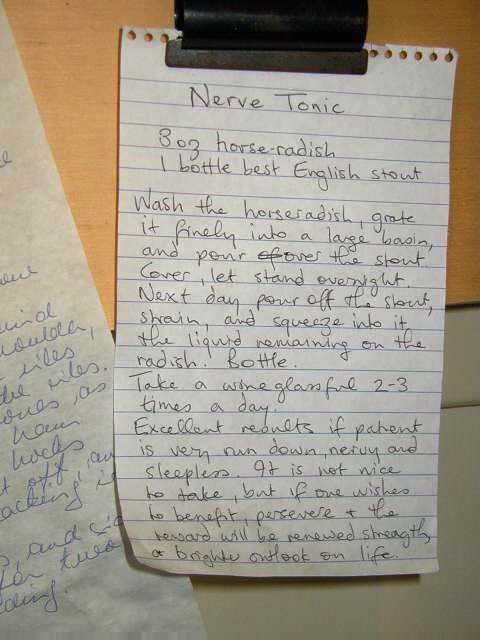 Nerve Tonic
3oz horse-radish
1 bottle best English stout
Wash the horseradish, grate
it finely into a large basin,
and pour of over the stout.
Cover, let stand overnight.
Next day pour off the stout,
strain, and squeeze into it
the liquid remaining on the
radish. Bottle.
Take a wineglassful 2-3
times a day.
Excellent results if patient
is very run down, nervy and
sleepless. It is not nice
to take, but if one wishes
to benefit, persevere + the
reward will be renewed strength,
& brighter outlook on life.